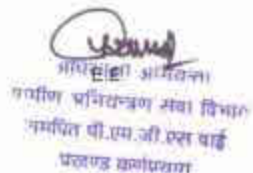 अधिशासी अभियन्ता
EE
ग्रामीण अभियन्त्रण सेवा विभाग
समर्पित पी.एम.जी.एस वाई
प्रखण्ड कर्णप्रयाग